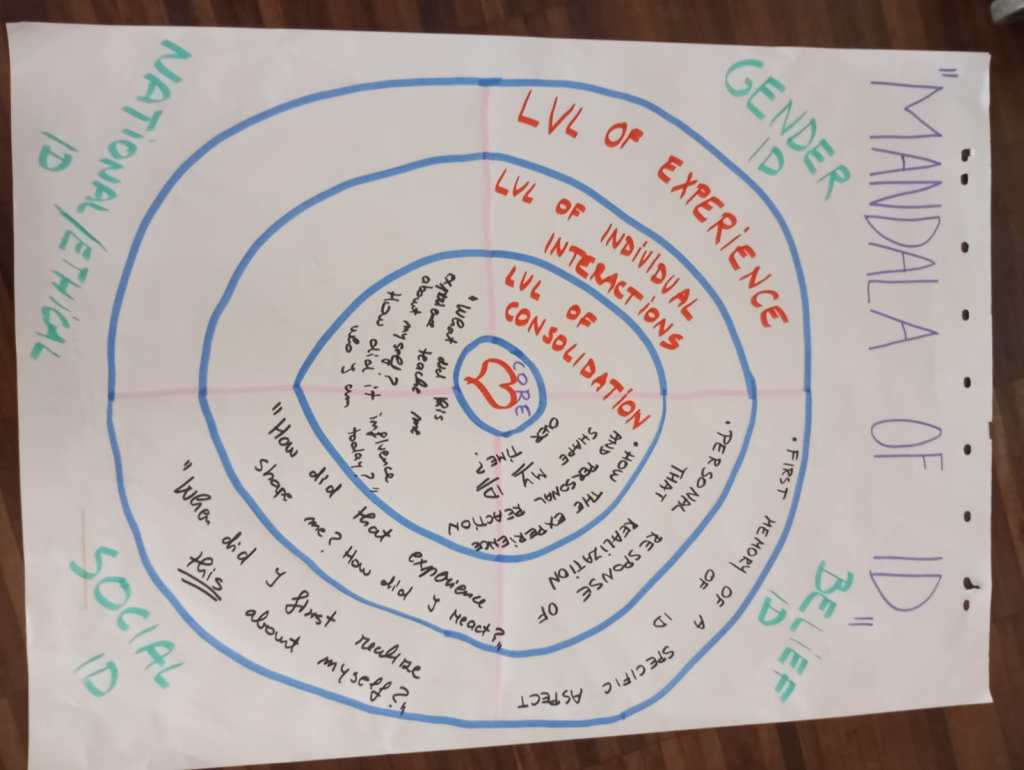 "MANDALA OF ID"
NATIONAL/ETHICAL
ID
GENDER
ID
LVL OF EXPERIENCE
LVL OF INDIVIDUAL
INTERACTIONS
LVL OF
CONSOLIDATION
CORE
• FIRST MEMORY OF A
SPECIFIC ASPECT
OF ID
• PERSONAL RESPONSE OF
THAT REALIZATION
• HOW THE EXPERIENCE
AND PERSONAL REACTION
SHAPE MY ID
OVER TIME?
"What did this
experience teache me
about myself?
How did it influence
who y am
today?"
"How did that experience
shape me? How did y react?"
"When did y first realize
this about myself?"
SOCIAL
ID
BELIEF
ID